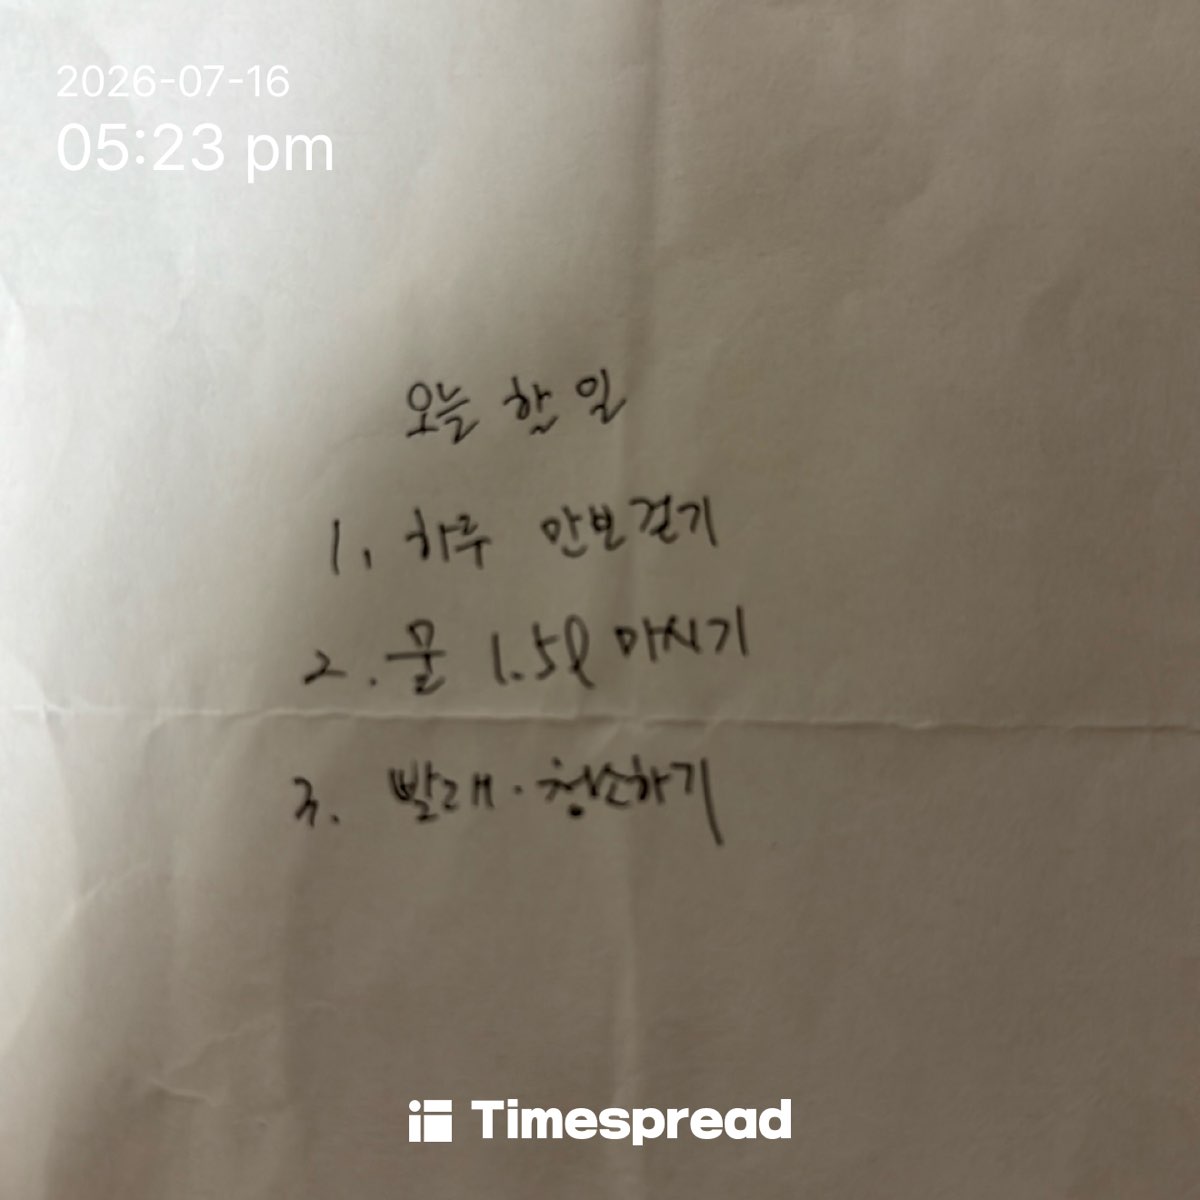 2026-07-16
05:23 pm
오늘 한 일
1. 하루 만보걷기
2. 물 1.5ℓ 마시기
3. 빨래·청소하기
Timespread